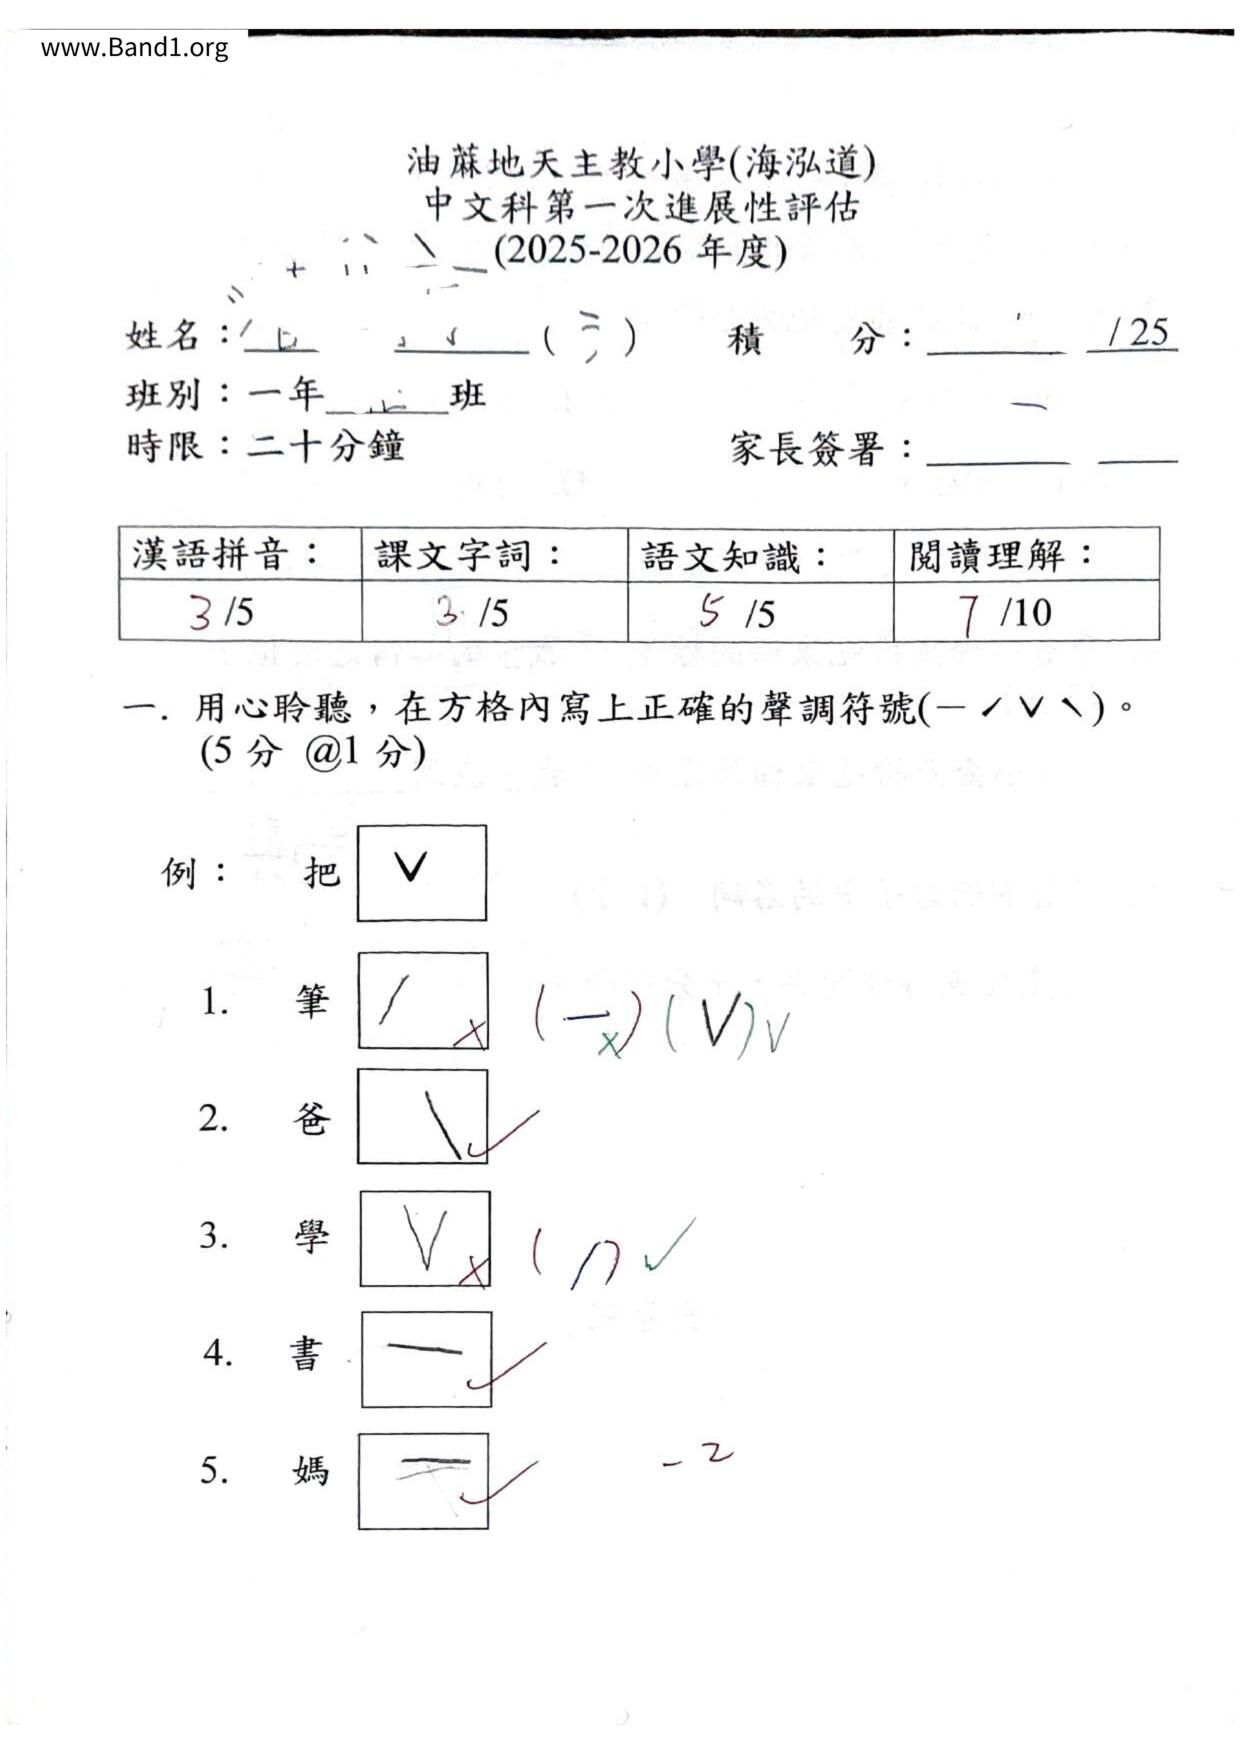 www.Band1.org
油蔴地天主教小學(海泓道)
中文科第一次進展性評估
(2025-2026 年度)
姓名： ( ) 積 分： /25
班別：一年 班
時限：二十分鐘 家長簽署：
漢語拼音： 課文字詞： 語文知識： 閱讀理解：
3 /5 3 /5 5 /5 7 /10
一. 用心聆聽，在方格內寫上正確的聲調符號(－ˊˇˋ)。
(5 分 @1 分)
例： 把 ˇ
1. 筆 ˊ × (－×) (ˇ) ✓
2. 爸 ˋ ✓
3. 學 ˇ × (ˊ) ✓
4. 書 － ✓
5. 媽 － ✓ -2